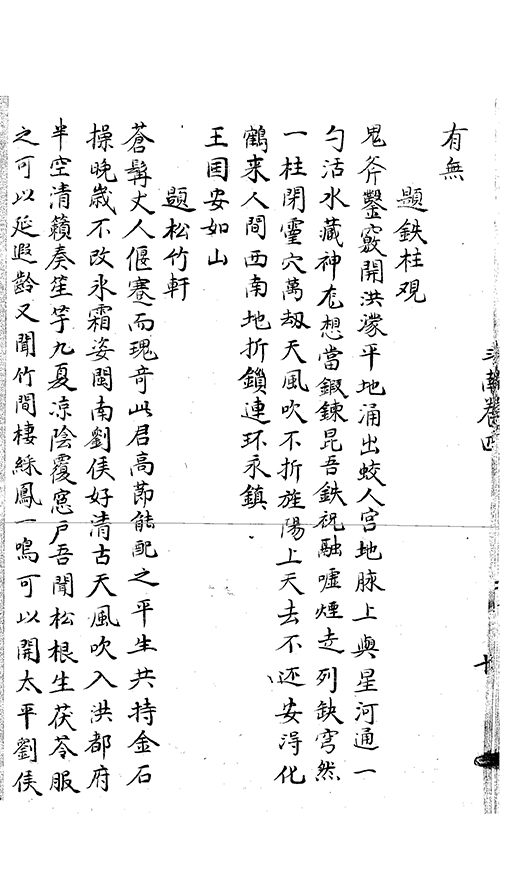 有無
題鉄柱观
鬼斧鑿竅開洪濛平地涌出蛟人宮地脉上與星河通一
勺活水藏神尨想當鍜鍊昆吾鉄祝融噓煙走列缺穹然
一柱閉靈穴萬刼天風吹不折旌陽上天去不还安淂化
鶴来人間西南地折鎖連环永鎮
王囯安如山
題松竹軒
蒼髯丈人偃蹇而瑰竒此君高莭能配之平生共持金石
操晚歳不改氷霜姿閩南劉侯好清古天風吹入洪都府
半空清籟奏笙竽九夏凉陰覆窓戸吾聞松根生茯苓服
之可以延遐齡又聞竹間棲綵鳳一鳴可以開太平劉侯
卷四
十